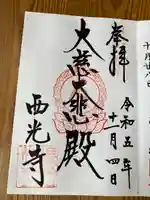 奉拝
令和五年
十一月四日
大慈大悲殿
西光寺